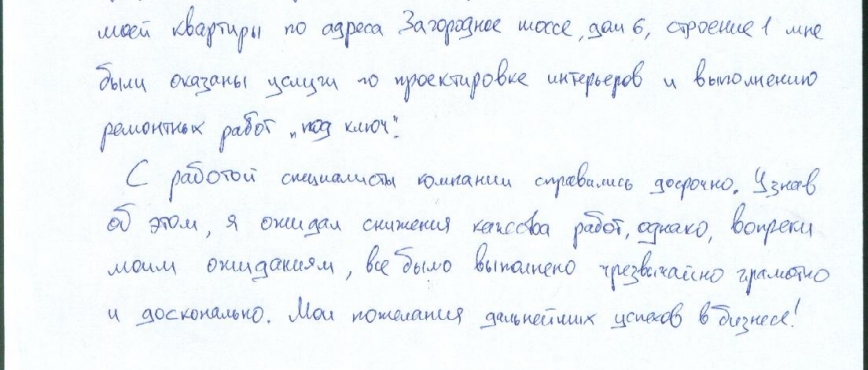 моей квартиры по адреса Загородное шоссе, дом 6, строение 1 мне
были оказаны услуги по проектировке интерьеров и выполнению
ремонтных работ „под ключ".
С работой специалисты компании справились досрочно. Узнав
об этом, я ожидал снижения качества работ, однако, вопреки
моим ожиданиям, все было выполнено чрезвычайно грамотно
и досконально. Мои пожелания дальнейших успехов в бизнесе!